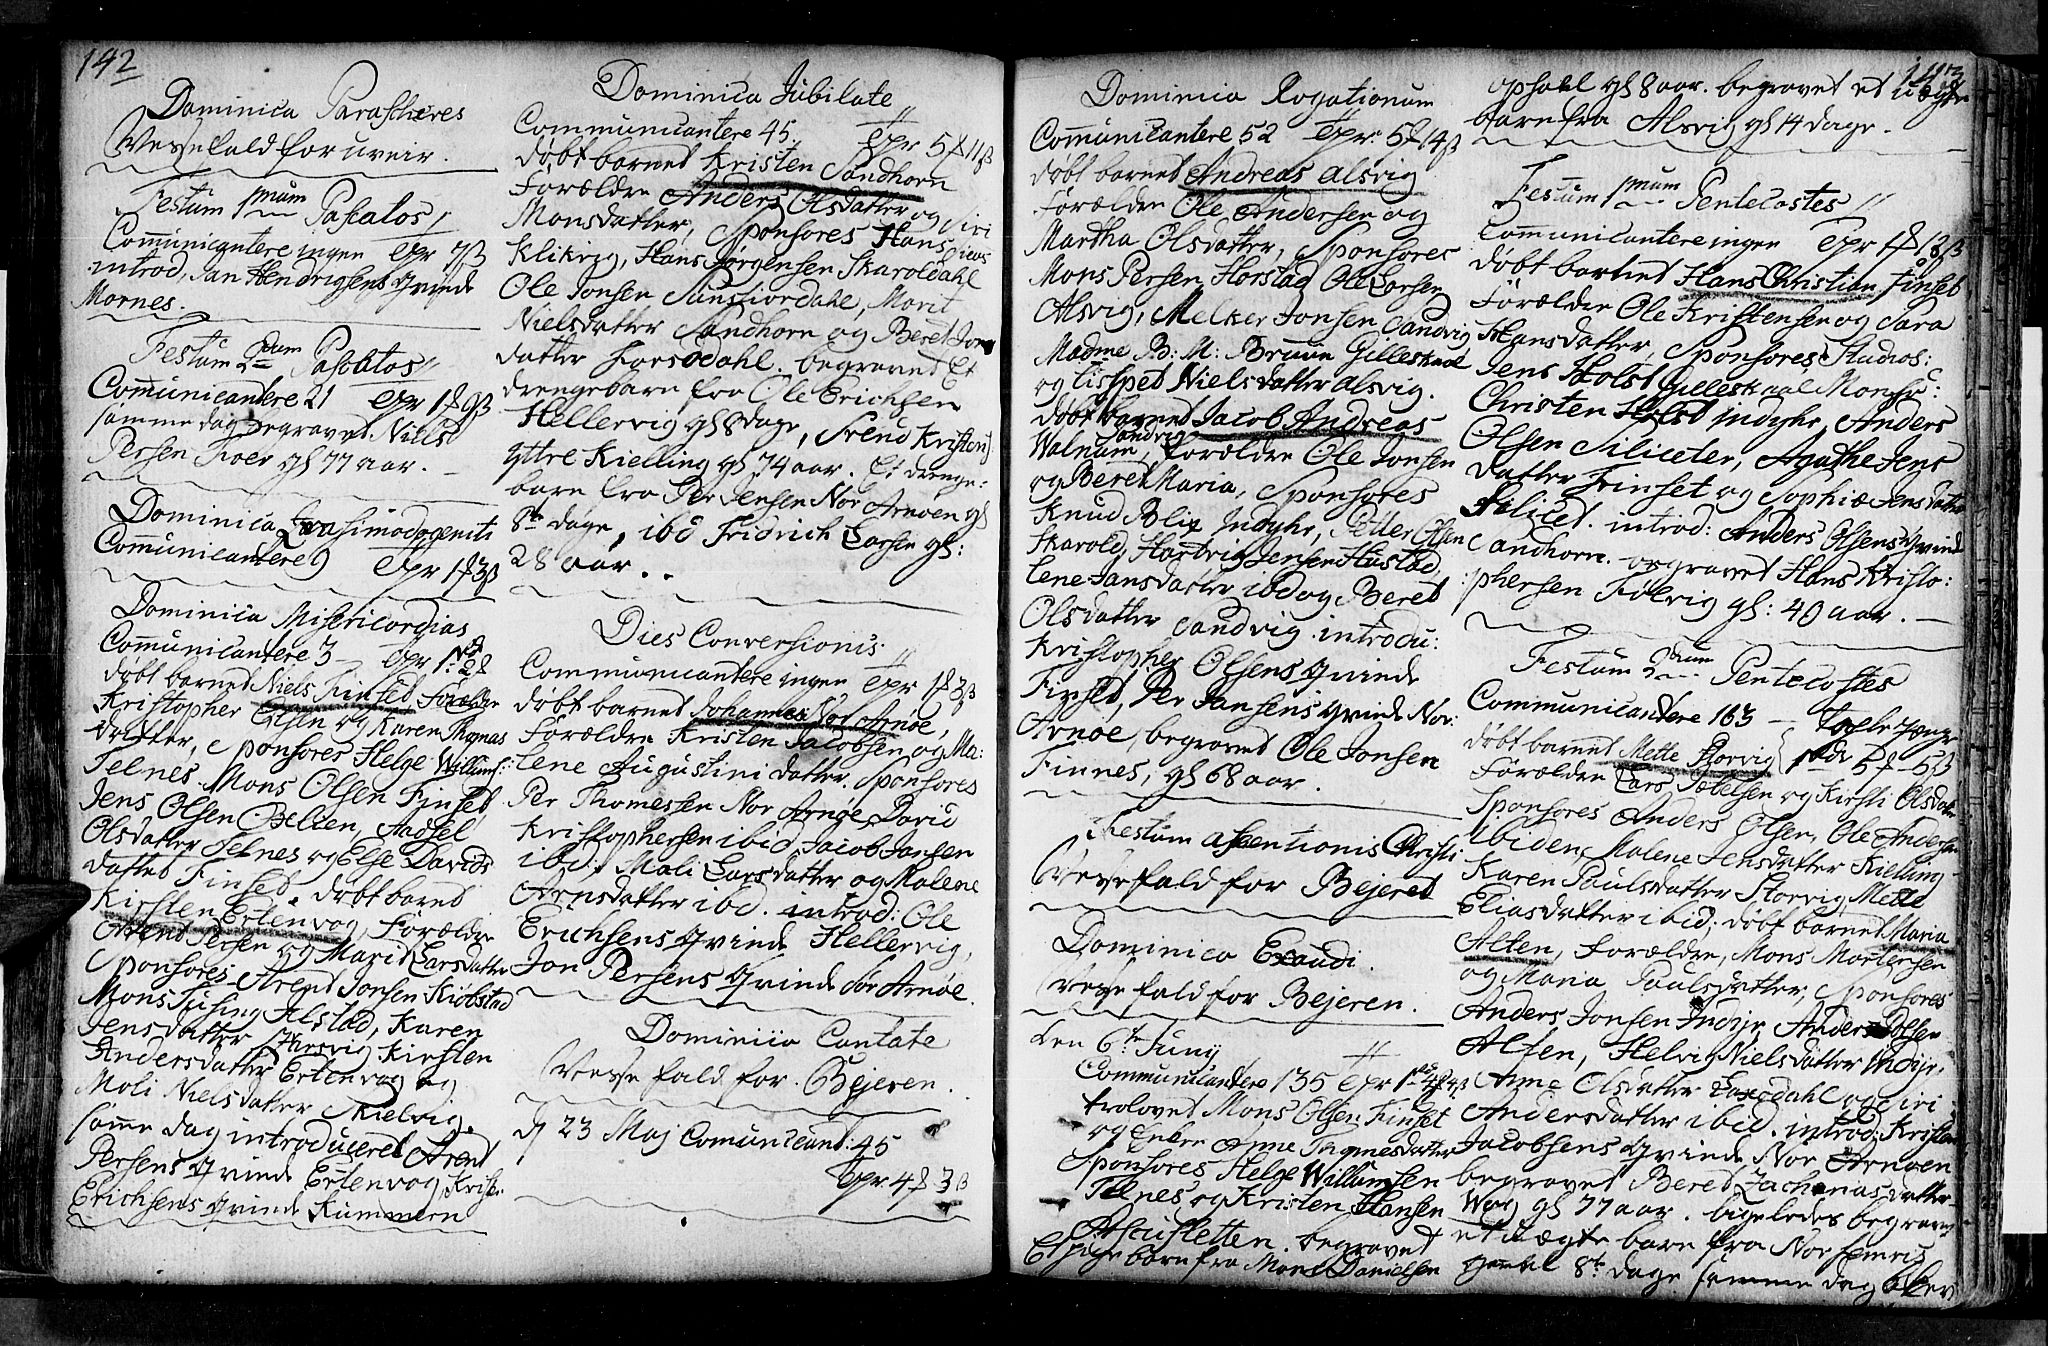 142
Dominica Parascheres
Messefald for uveir.
Festum 1mum Pascatos
Communicantere ingen Tpr 7ß
introd, Jan Hendrigsens Qvinde
Mornes.
Festum 2dum Pascatos
Communicantere 21 Tpr 1 9ß
samme dag begravet Niels
Persen gl 77 aar.
Dominica Qvasimodogeniti
Communicantere 9 Tpr 1 3ß
Dominica Misericordias
Communicantere 3 Tpr 1
døbt barnet Niels Finset, Forældre
Kristopher Olsen og Karen Thomas
datter, Sponsores Helge Willums:
Telnes Mons Olsen Finset
Jens Olsen
Olsdatter Telnes og Else Davids
datter Finset. døbt barnet
Kirsten Ertenvog, Forældre
Arent Persen og Marit Larsdatter
Sponsores Arent Jonsen Kiøbstad
Mons Alstad, Karen
Jensdatter Kirsten
Andersdatter Ertenvog og
Moli Nielsdatter Skielvig.
samme dag introduceret Arent
Persens Qvinde Ertenvog, Kristen
Erichsens Qvinde Kummern
Dominica Jubilate
Communicantere 45. Tpr 5 11ß
døbt barnet Kristen Sandhorn
Forældre Anders Olsdatter og Siri
Monsdatter, Sponsores Hans
Klikvig, Hans Jørgensen Skaroldahl
Ole Jonsen Sunsfiordahl, Morit
Nielsdatter Sandhorn og Beret Jons
datter Forsdahl. begravet Et
drengebarn fra Ole Erichsen
Hellervig gl 8 dage, Svend Kristens:
Yttre Kielling gl 74 aar. Et drenge:
barn fra Per Jensen Nor Arnøen gl
8te dage, ibd Fridrich Larsen gl:
28 aar.
Dies Conversionis
Communicantere ingen Tpr 1 3ß
døbt barnet Johannes Nor Arnøe,
Forældre Kristen Jacobsen og Ma:
lene Augustini datter. Sponsores
Per Thomessen Nor Arnøe, David
Kristophersen ibid, Jacob Jansen
ibd: Mali Larsdatter og Malene
Arnsdatter ibd. introd: Ole
Erichsens Qvinde Hellervig,
Jon Persens Qvinde Sør Arnøe.
Dominica Cantate
Messefald for Bejeren.
d 23 Maj Comunicant: 45
Tpr 4 3ß
143
Dominica Rogationum
Communicantere 52 Tpr: 5 14ß
døbt barnet Andreas Alsvig
Forældre Ole Andersen og
Martha Olsdatter, Sponsores
Mons Persen Horstad Ole Larsen
Alsvig, Melker Jonsen Sandvig
Madme B: M: Bruun Gilleskaal
og Lisspet Nielsdatter Alsvig.
døbt barnet Jacob Andreas
Sandvig
Walnum, Forældre Ole Jonsen
og Beret Maria, Sponsores
Knud Blix Indyhr, Petter Olsen
Skarold, Hartvig Jensen Hustad,
Lene Jansdatter ibd og Beret
Olsdatter Sandvig. introdu:
Kristopher Olsens Qvinde
Finset, Per Jansens Qvinde Nor:
Arnøe, begravet Ole Jonsen
Finnes, gl 68 aar.
Festum assentionis Christi
Messefald for Bejeren
Dominica Exaudi.
Messefald for Bejeren.
den 6te Juny
Communicantere 135 Tpr 1 4ß
trolovet Mons Olsen Finset
og Enken Anne Thomesdatter
Sponsores Helge Willumsen
Telnes og Kristen Hansen
begravet
Et barn fra Mons Danielsen
opsael gl 8 aar. begravet et uægte
barn fra Alsvig gl 14 dage.
Festum 1mum Pentecostes
Communicantere ingen Tpr 1 13ß
døbt barnet Hans Christian Finset
Forældre Ole Kristensen og Sara
Hansdatter, Sponsores Studios:
Jens Holst Gilleskaal Monsu:
Christen Holst Indyhr, Anders
Olsen Siliceter, Agathe Jens
datter Finset og Sophie Jensdatter
Silicet. introd: Anders Olsens Qvinde
Sandhorn. begravet Hans Kristo:
:phersen Følvig gl: 40 aar.
Festum 2dum Pentecostes
Communicantere 163
døbt barnet Mette Storvig 5 5ß
Forældre Lars og Kirsti Olsdatter
Sponsores Anders Olsen, Ole Andersen
Ibiden, Malene Jensdatter Kielling
Karen Paulsdatter Storvig, Mette
Eliasdatter ibid: døbt barnet Maria
Alten, Forældre, Mons Mortensen
og Maria Paulsdatter, Sponsores
Anders Jonsen Indyr, Anders Olsen
Alten, Helvig Nielsdatter Indyr,
Anne Olsdatter og Siri
Andersdatter ibid. introd: Kristen
Jacobsens Qvinde Nor Arnøen
begravet Beret Zachariasdatter
Wog gl 77 aar. ligeledes begravet
et uægte barn fra Nor
gamel 8te dage samme dag blev